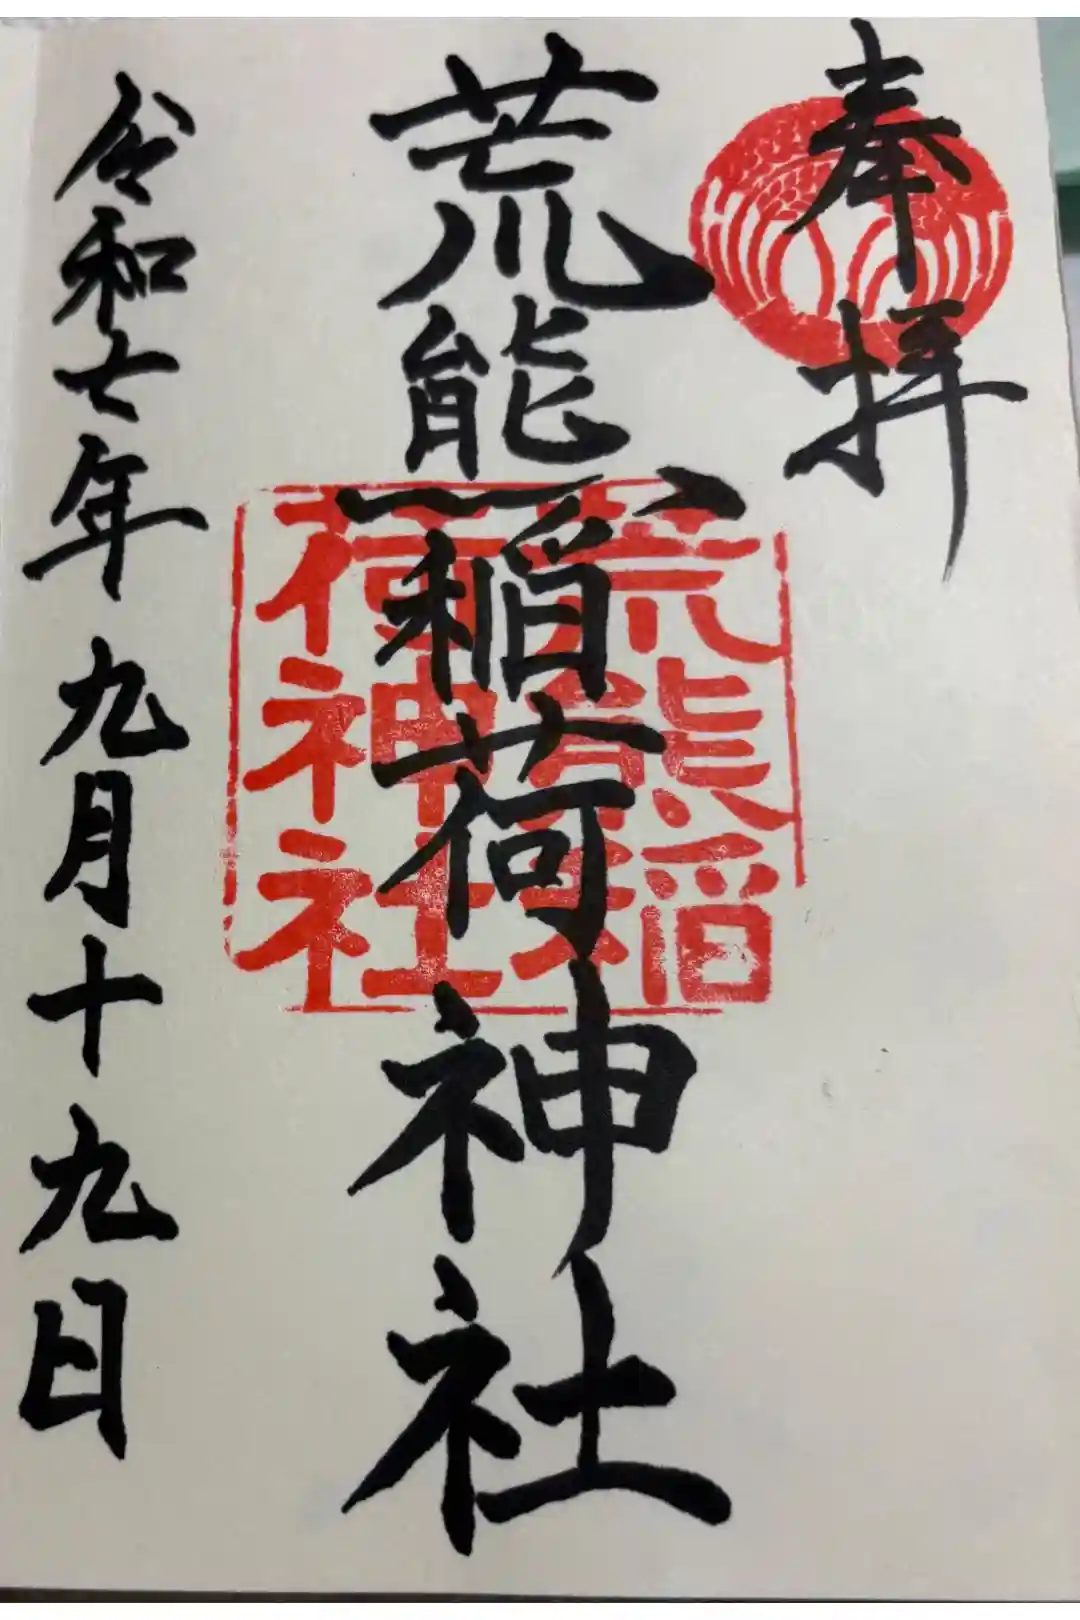 奉拝
荒熊稲荷神社
荒熊稲荷神社
令和七年九月十九日